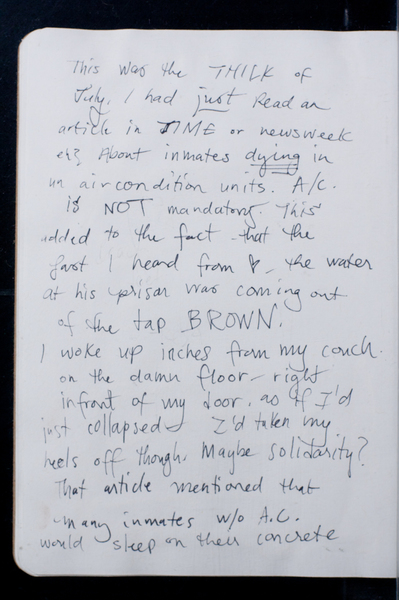 This was the THICK of
July. I had just Read an
article in TIME or newsweek
About inmates dying in
un air condition units. A/C.
is NOT mandatory. This
added to the fact that the
last I heard from ♥ – the water
at his prison was coming out
of the tap BROWN.
I woke up inches from my couch
on the damn floor – right
infront of my door. as if I'd
just collapsed I'd taken my
heels off though. Maybe solidarity?
That article mentioned that
many inmates w/o A.C.
would sleep on their concrete